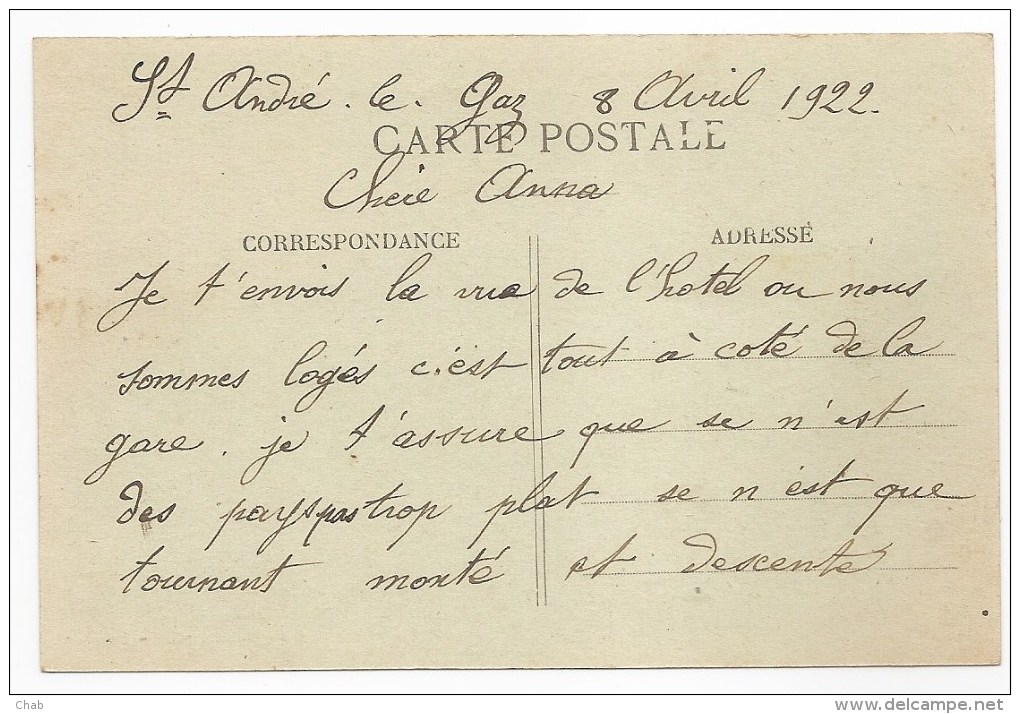 St André. le. Gaz 8 Avril 1922.
CARTE POSTALE
Chère Anna
CORRESPONDANCE ADRESSE
Je t'envois la vue de l'hotel ou nous
sommes logés c'est tout à coté de la
gare. je t'assure que se n'est
des pays pas trop plat se n'est que
tournant monté et descente
Chab
www.delcampe.net